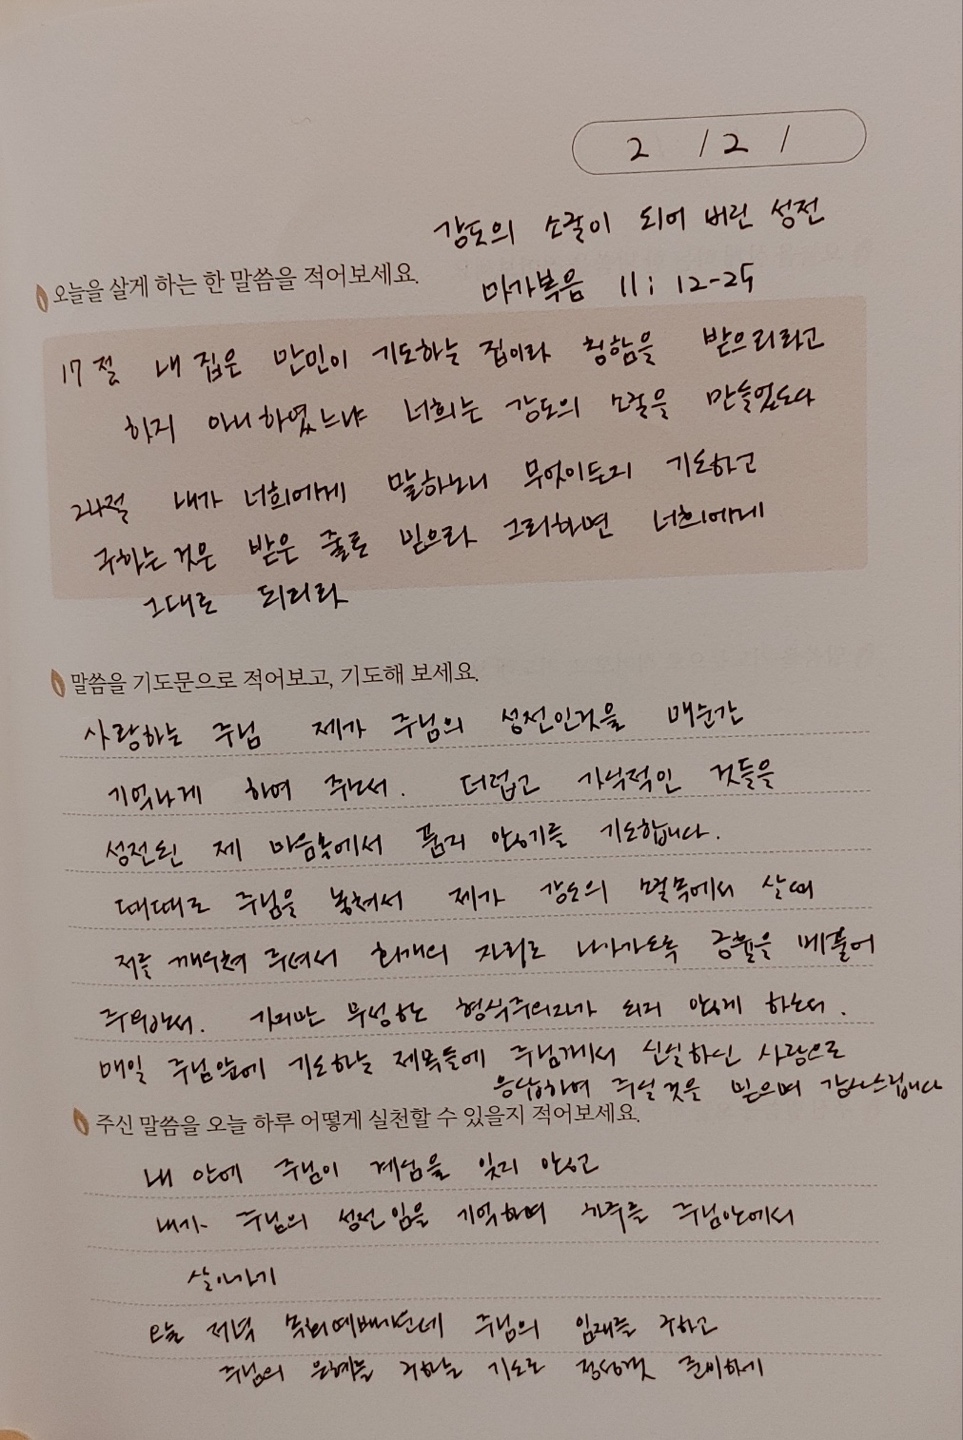 2 / 2 /
강도의 소굴이 되어 버린 성전
오늘을 살게 하는 한 말씀을 적어보세요.
마가복음 11 : 12-25
17절 내 집은 만민이 기도하는 집이라 칭함을 받으리라고
하지 아니하였느냐 너희는 강도의 소굴을 만들었도다
24절 내가 너희에게 말하노니 무엇이든지 기도하고
구하는 것은 받은 줄로 믿으라 그리하면 너희에게
그대로 되리라
말씀을 기도문으로 적어보고, 기도해 보세요.
사랑하는 주님 제가 주님의 성전인것을 매순간
기억나게 하여 주소서. 더럽고 가식적인 것들을
성전된 제 마음밭에서 품지 않기를 기도합니다.
때때로 주님을 놓쳐서 제가 강도의 에서 살때
저를 깨우쳐 주셔서 회개의 자리로 나아가도록 긍휼을 베풀어
주옵소서. 무성한 형식주의자가 되지 않게 하소서.
매일 주님앞에 기도하는 제목들에 주님께서 신실하신 사랑으로
응답하여 주실것을 믿으며 감사드립니다
주신 말씀을 오늘 하루 어떻게 실천할 수 있을지 적어보세요.
내 안에 주님이 계심을 잊지 않고
내가 주님의 성전임을 기억하며 하루를 주님안에서
살아가기
오늘 저녁 주님의 임재를 구하고
주님의 은혜를 구하는 기도로 정성껏 준비하기